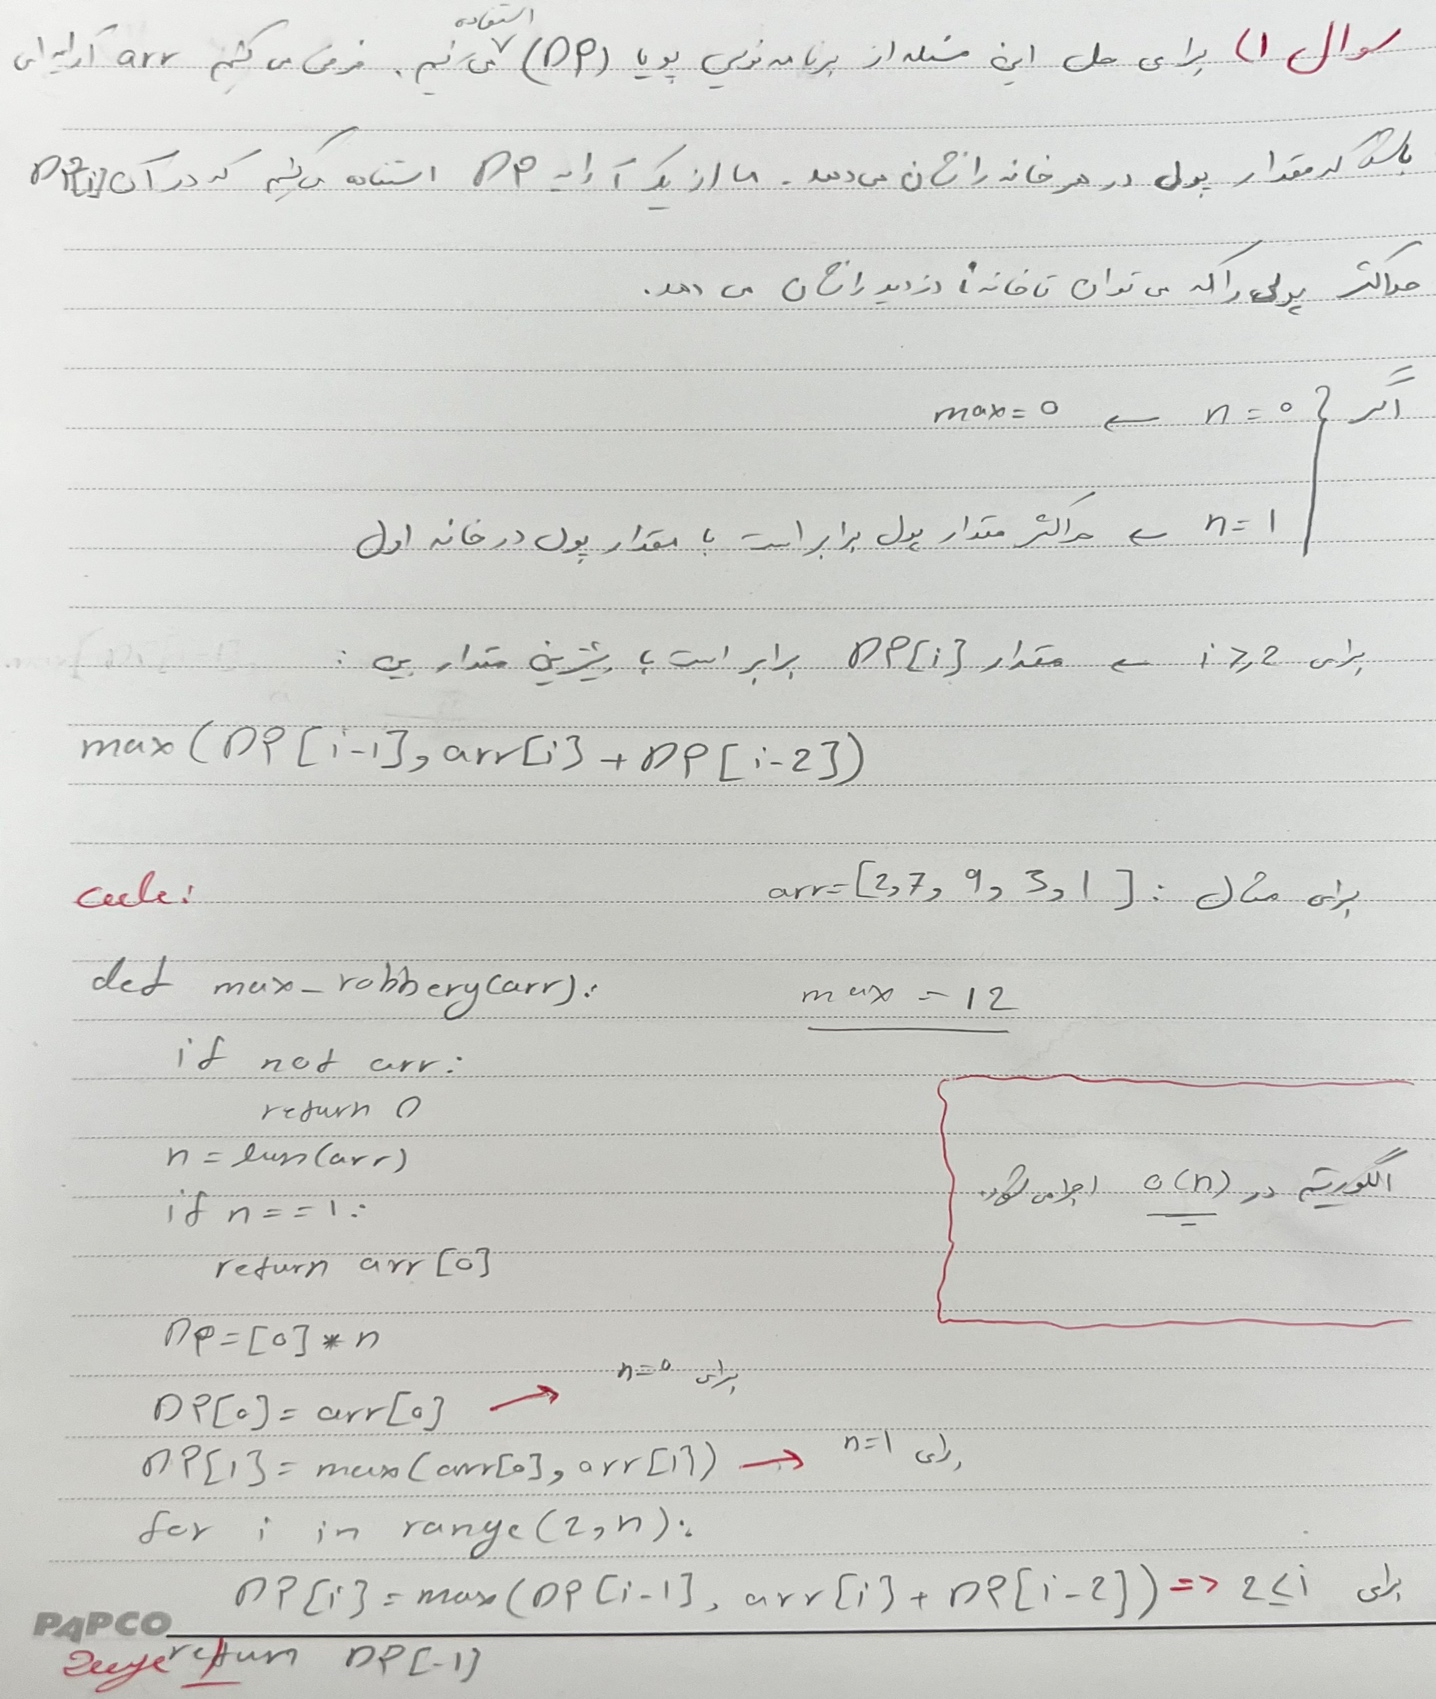 سوال ۱) برای حل این مسئله از برنامه نویسی پویا (DP) استفاده می کنیم. فرض می کنیم arr آرایه ای
باشد که مقدار پول در هر خانه را نشان می دهد. ما از یک آرایه DP استفاده می کنیم که در آن DP[i]
حداکثر پولی را که می توان تا خانه i دزدید را نشان می دهد.
اگر { n = 0 ← max = 0
n = 1 ← حداکثر مقدار پول برابر است با مقدار پول در خانه اول
برای i ≥ 2 ← مقدار DP[i] برابر است با بیشترین مقدار بین :
max(DP[i-1], arr[i] + DP[i-2])
برای مثال : arr=[2,7,9,3,1]
max = 12
code:
def max_robbery(arr):
if not arr:
return 0
n = len(arr)
if n == 1:
return arr[0]
DP = [0] * n
DP[0] = arr[0] → برای n=0
DP[1] = max(arr[0], arr[1]) → برای n=1
for i in range(2,n):
DP[i] = max(DP[i-1], arr[i] + DP[i-2]) => 2 ≤ i برای
return DP[-1]
الگوریتم در O(n) اجرا می شود.
PAPCO